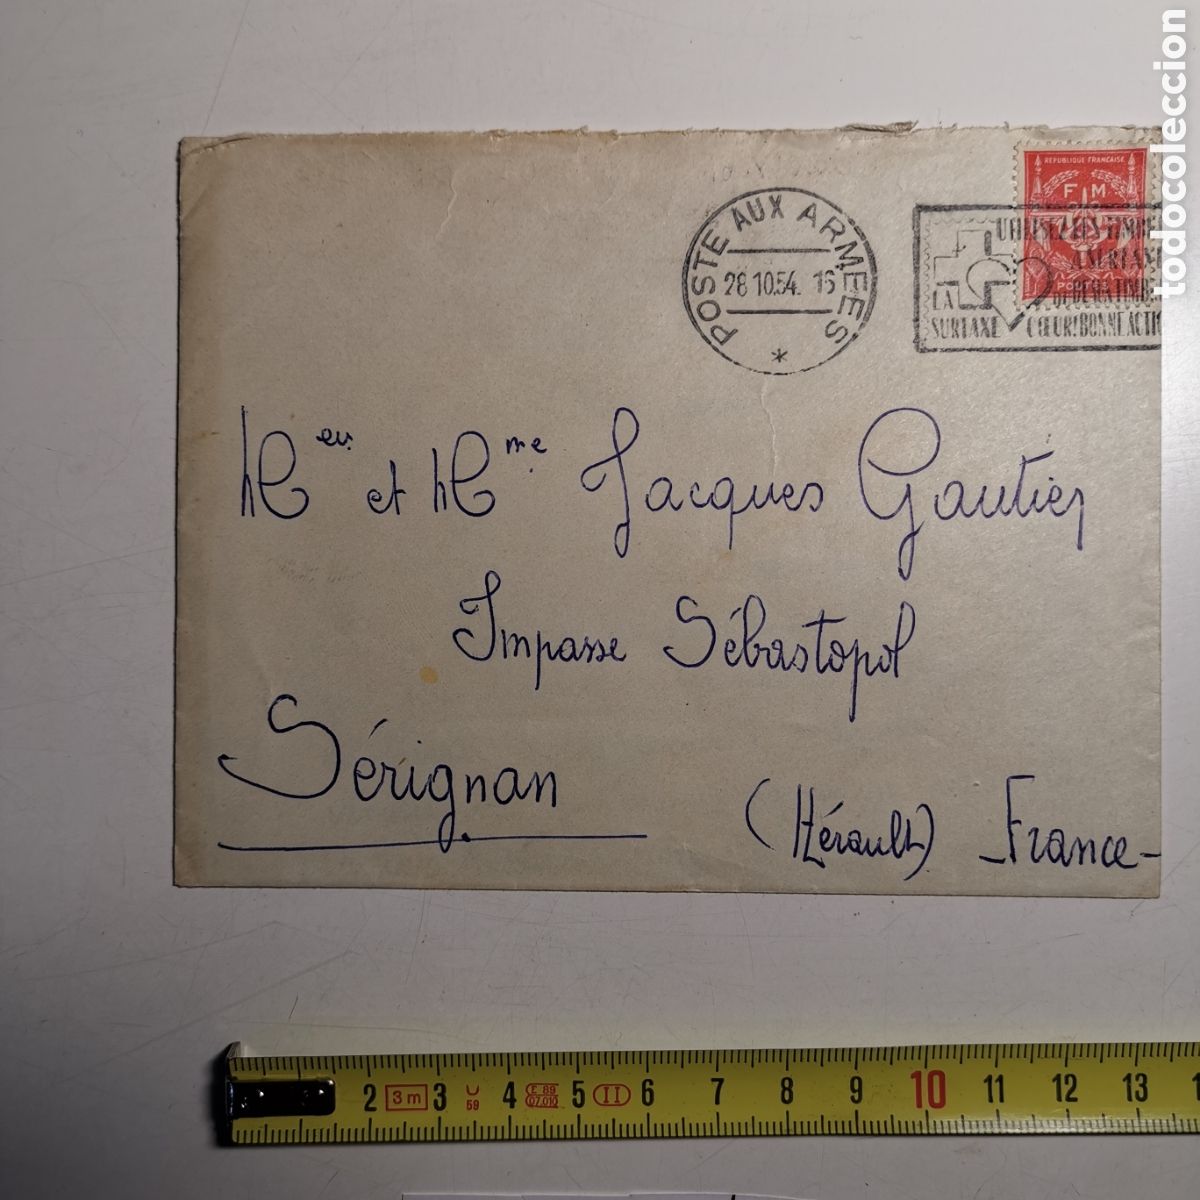 todocoleccion
REPUBLIQUE FRANÇAISE
F M
POSTES
POSTE AUX ARMEES
28 10.54. 16
*
UTILISEZ LES TIMBRE
A SURTAXE
LA
SURTAXE CŒUR! BONNE ACTIO
Mr et Mme Jacques Gautier
Impasse Sébastopol
Sérignan
(Hérault) - France -
2 3 m 3 59 4 E 89 07.010 5 II 6 7 8 9 10 11 12 13